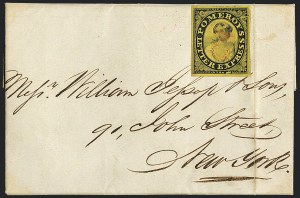 POMEROY'S
LETTER EXPRESS.
Messrs. William Jessop & Sons,
90, John Street,
New York.